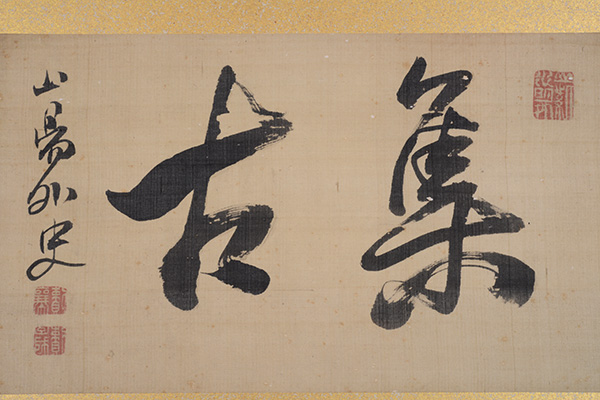 集古
山陽外史